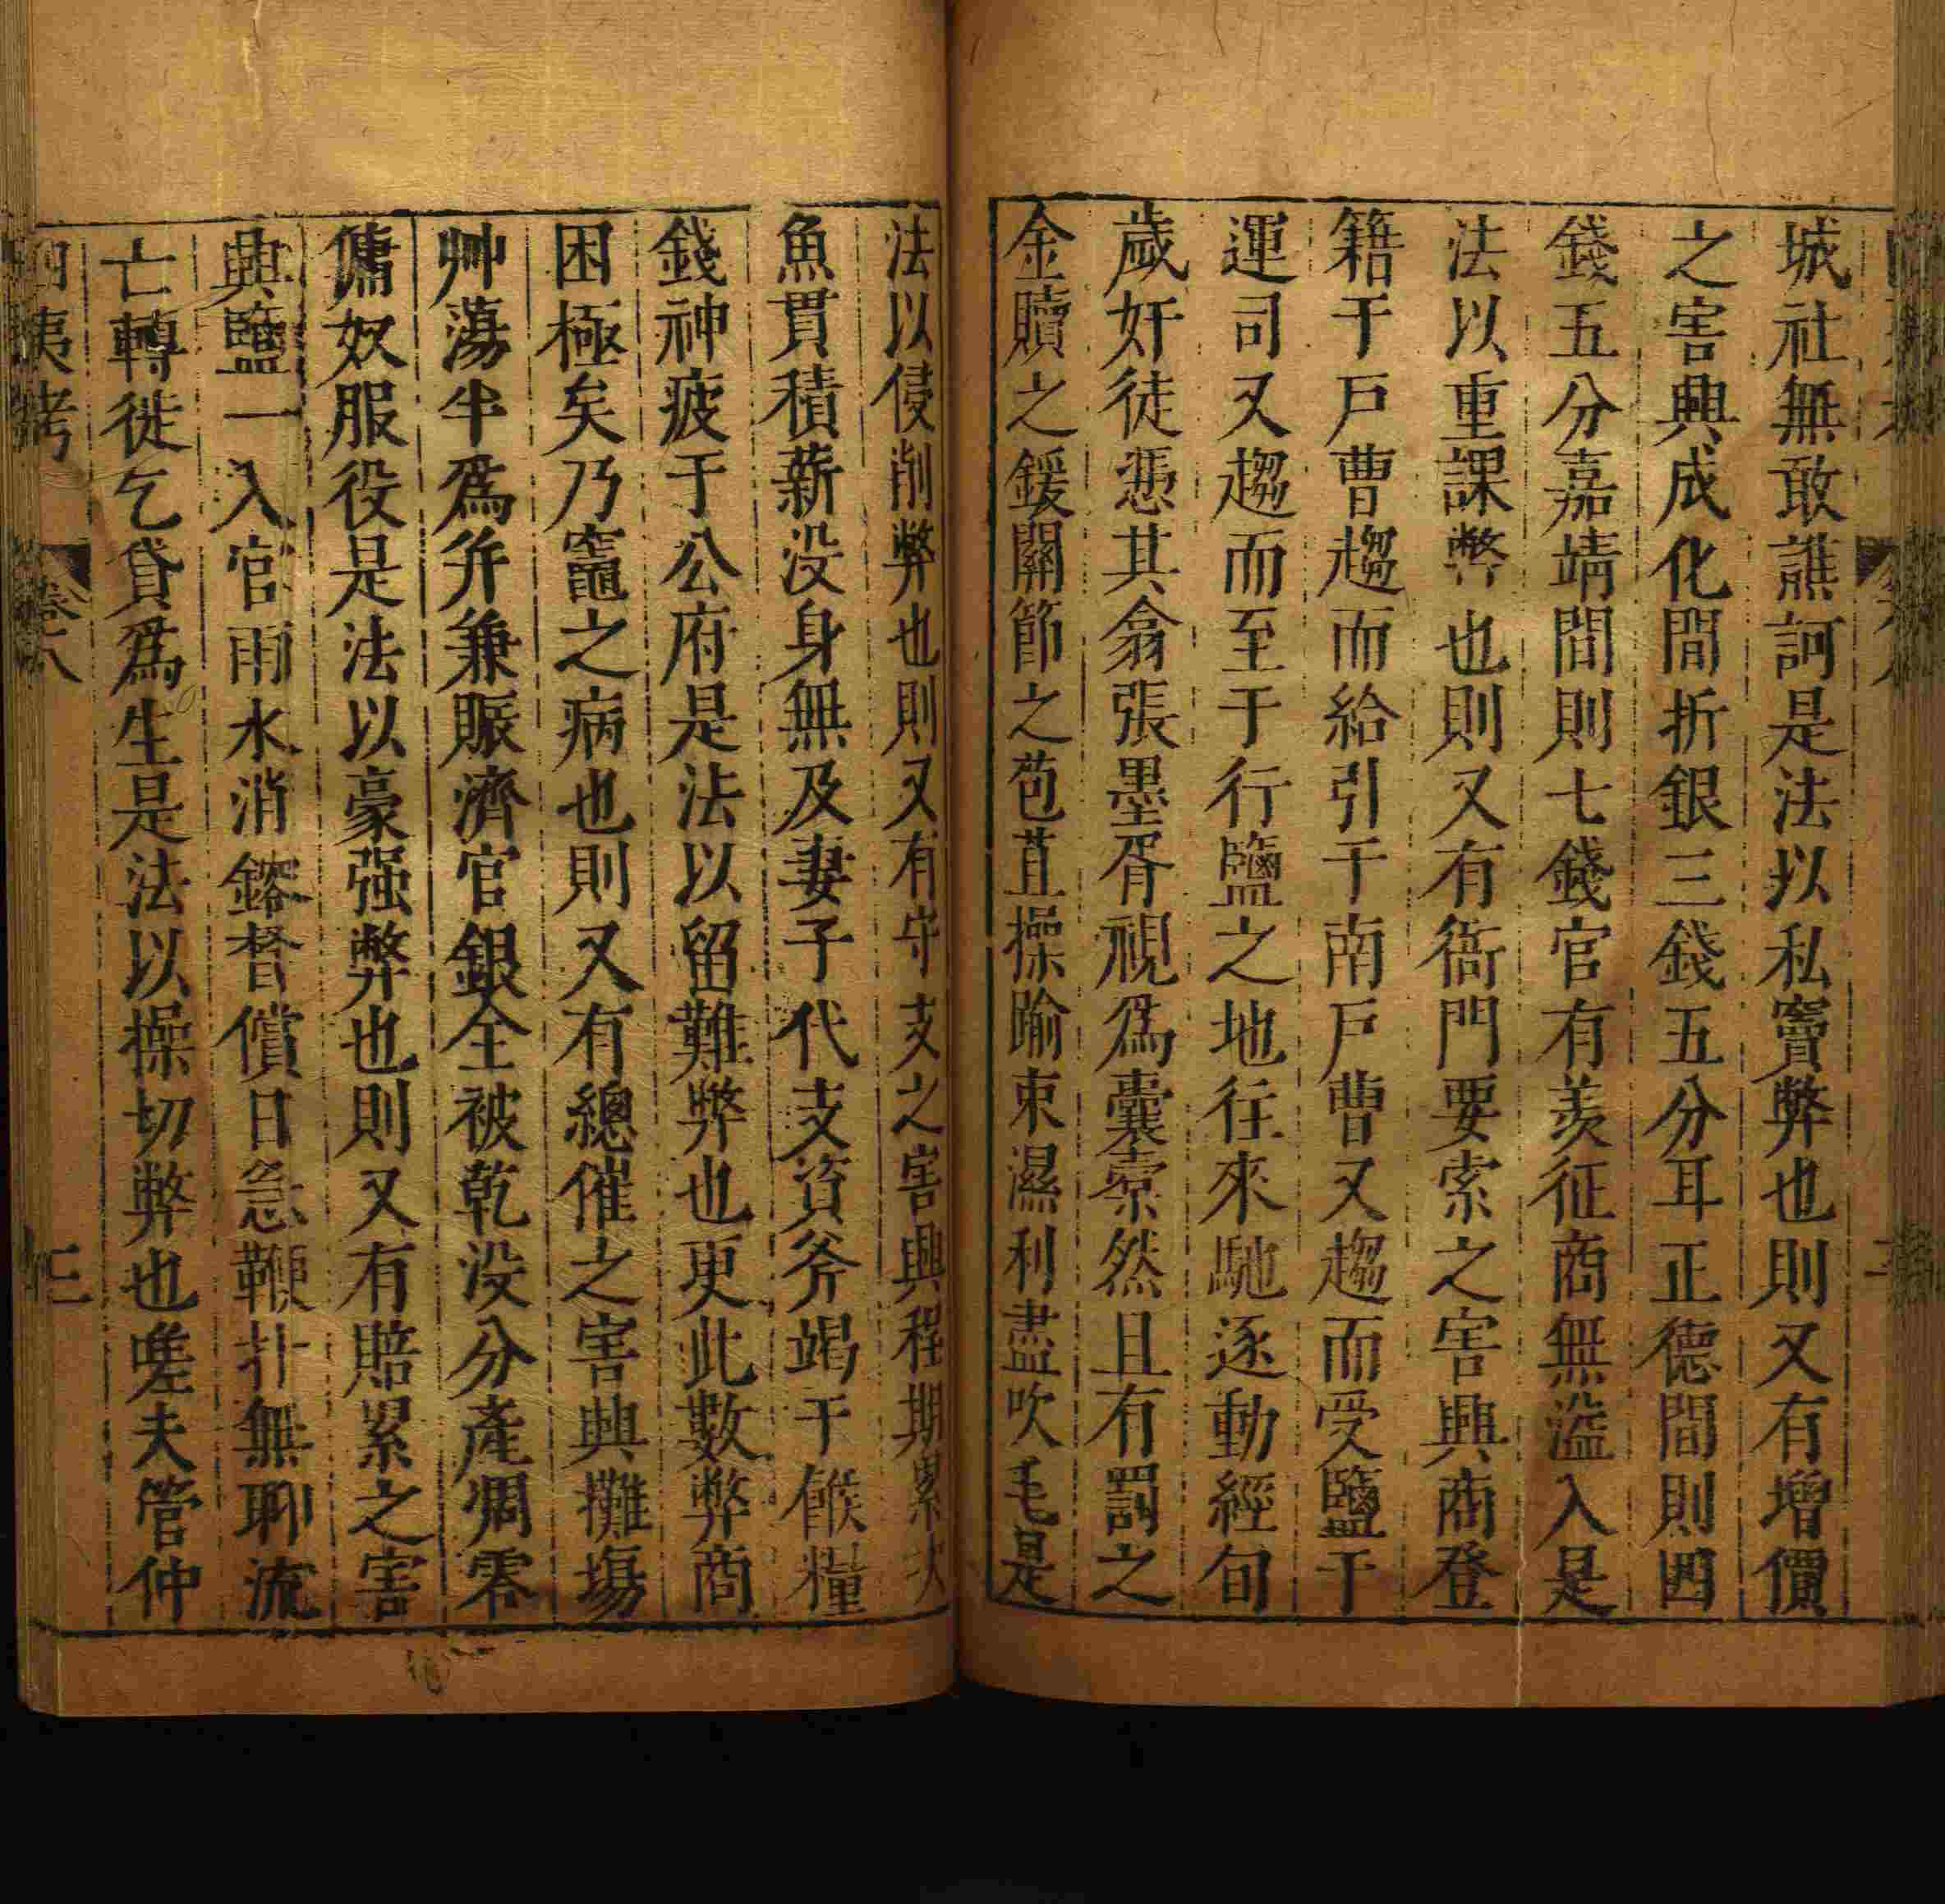 城社無敢譙訶是法以私竇弊也則又有增價
之害興成化間折銀三錢五分耳正德間則四
錢五分嘉靖間則七錢官有羡征商無溢入是
法以重課弊也則又有衙門要索之害興商登
籍于戶曹趨而給引于南戶曹又趨而受鹽于
運司又趨而至于行鹽之地往來馳逐動經旬
歲奸徒慿其翕張墨胥視爲囊橐然且有罰之
金贖之鍰關節之苞苴操踰束濕利盡吹毛是
法以侵削弊也則又有守支之害興程期累次
魚貫積薪没身無及妻子代支資斧竭于餱糧
錢神疲于公府是法以留難弊也更此數弊商
困極矣乃竈之病也則又有總催之害興攤塲
艸蕩半爲并兼賑濟官銀全被乾没分產凋零
傭奴服役是法以豪强弊也則又有賠累之害
興鹽一入官雨水消鎔督償日急鞭扑無聊流
亡轉徙乞貸爲生是法以操切弊也嗟夫管仲
四夷考 卷八 三